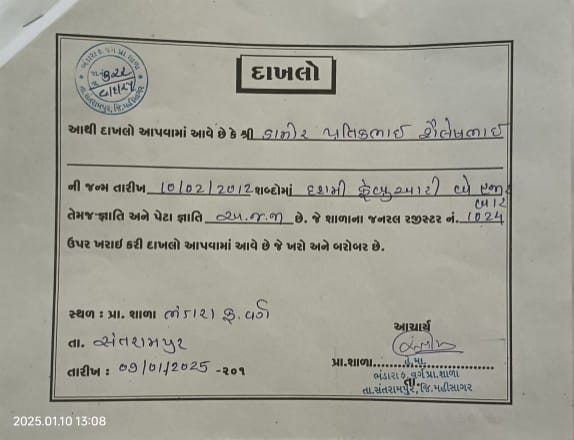 દાખલો
આથી દાખલો આપવામાં આવે છે કે શ્રી ડામોર પ્રતિકભાઈ શૈલેષભાઈ
ની જન્મ તારીખ 10/02/2012 શબ્દોમાં દશમી ફેબ્રુઆરી બે હજાર
બાર
તેમજ જ્ઞાતિ અને પેટા જ્ઞાતિ અ.જ.જા છે. જે શાળાના જનરલ રજીસ્ટર નં. 1024
ઉપર ખરાઇ કરી દાખલો આપવામાં આવે છે જે ખરો અને બરોબર છે.
સ્થળ : પ્રા. શાળા ભંડારા ફ. વર્ગ
આચાર્ય
તા. સંતરામપુર
પ્રા.શાળા
તારીખ : 09/01/2025 -૨૦૧
ભંડારા ફ. વર્ગ પ્રા.શાળા
તા.
તા.સંતરામપુર, જિ.મહીસાગર
2025.01.10 13:08